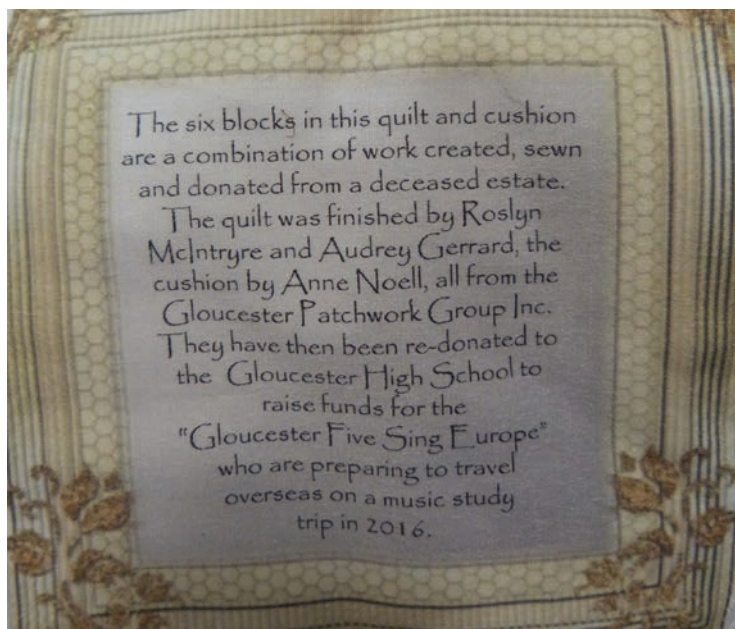 The six blocks in this quilt and cushion
are a combination of work created, sewn
and donated from a deceased estate.
The quilt was finished by Roslyn
McIntryre and Audrey Gerrard, the
cushion by Anne Noell, all from the
Gloucester Patchwork Group Inc.
They have then been re-donated to
the Gloucester High School to
raise funds for the
"Gloucester Five Sing Europe"
who are preparing to travel
overseas on a music study
trip in 2016.